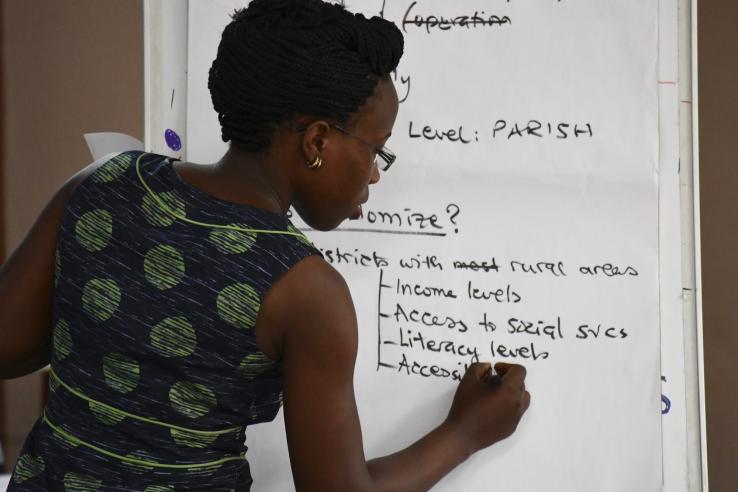 Coperation
y
Level: PARISH
omize?
istricts with most rural areas
Income levels
Access to social svcs
Literacy levels
Accessi